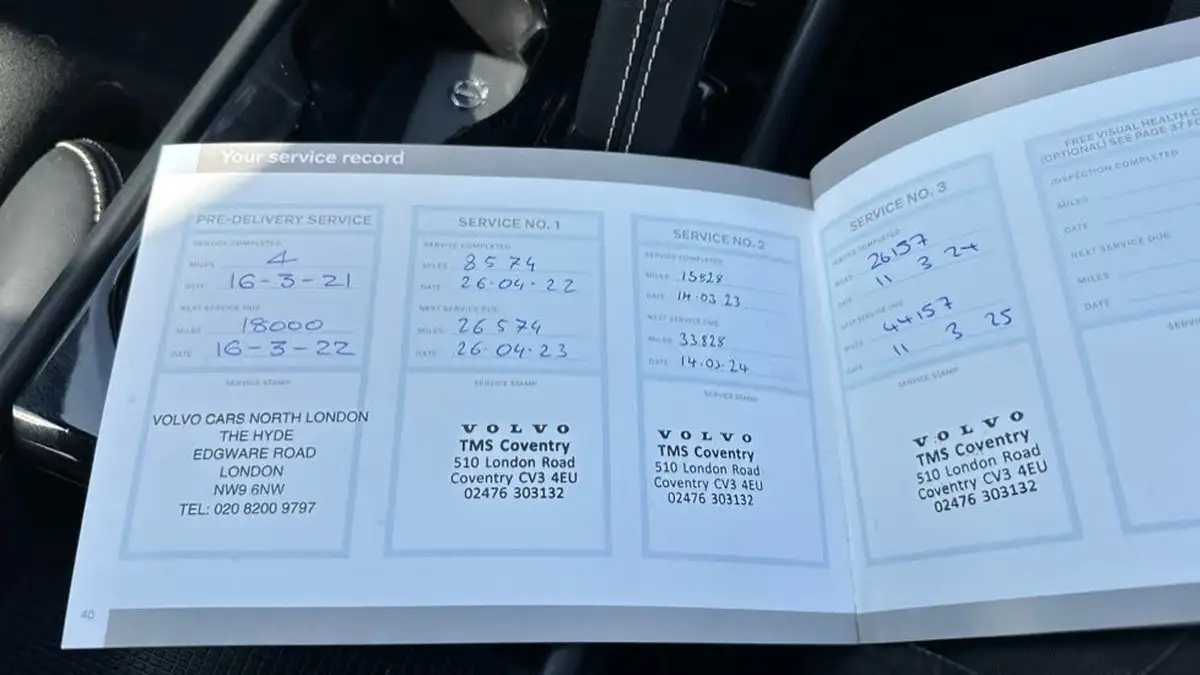 Your service record
PRE-DELIVERY SERVICE
SERVICE COMPLETED
MILES 4
DATE 16-3-21
NEXT SERVICE DUE
MILES 18000
DATE 16-3-22
SERVICE STAMP
VOLVO CARS NORTH LONDON
THE HYDE
EDGWARE ROAD
LONDON
NW9 6NW
TEL: 020 8200 9797
40
SERVICE NO. 1
SERVICE COMPLETED
MILES 8574
DATE 26.04.22
NEXT SERVICE DUE
MILES 26574
DATE 26.04.23
SERVICE STAMP
VOLVO
TMS Coventry
510 London Road
Coventry CV3 4EU
02476 303132
SERVICE NO. 2
SERVICE COMPLETED
MILES 15828
DATE 14.03.23
NEXT SERVICE DUE
MILES 33828
DATE 14.03.24
SERVICE STAMP
VOLVO
TMS Coventry
510 London Road
Coventry CV3 4EU
02476 303132
SERVICE NO. 3
SERVICE COMPLETED
MILES 26157
DATE 11 3 24
NEXT SERVICE DUE
MILES 44157
DATE 11 3 25
SERVICE STAMP
VOLVO
TMS Coventry
510 London Road
Coventry CV3 4EU
02476 303132
FREE VISUAL HEALTH
(OPTIONAL) SEE PAGE 37
INSPECTION COMPLETED
MILES
DATE
NEXT SERVICE DUE
MILES
DATE